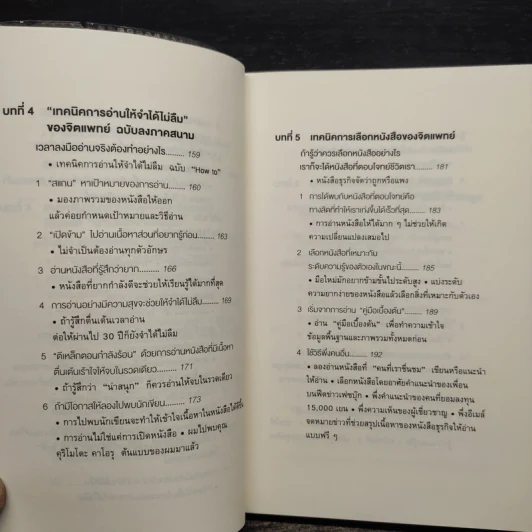 บทที่ 4 "เทคนิคการอ่านให้จำได้ไม่ลืม"
ของจิตแพทย์ ฉบับลงภาคสนาม
เวลาลงมืออ่านจริงต้องทำอย่างไร......... 159
• เทคนิคการอ่านให้จำได้ไม่ลืม ฉบับ "How to"
1 "สแกน" หาเป้าหมายของการอ่าน......... 160
• มองภาพรวมของหนังสือให้ออก
แล้วค่อยกำหนดเป้าหมายและวิธีอ่าน
2 "เปิดข้าม" ไปอ่านเนื้อหาส่วนที่อยากรู้ก่อน......... 163
• ไม่จำเป็นต้องอ่านทุกตัวอักษร
3 อ่านหนังสือที่รู้สึกว่ายาก......... 166
• หนังสือที่ยากกำลังดีจะช่วยให้เรียนรู้ได้มากที่สุด
4 การอ่านอย่างมีความสุขจะช่วยให้จำได้ไม่ลืม......... 169
• ถ้ารู้สึกตื่นเต้นเวลาอ่าน
ต่อให้ผ่านไป 30 ปีก็ยังจำได้ไม่ลืม
5 "ตีเหล็กตอนกำลังร้อน" ด้วยการอ่านหนังสือที่มีเนื้อหา
ตื่นเต้นเร้าใจให้จบในรวดเดียว......... 171
• ถ้ารู้สึกว่า "น่าสนุก" ก็ควรอ่านให้จบในรวดเดียว
6 ถ้ามีโอกาสให้ลองไปพบนักเขียน......... 173
• การไปพบนักเขียนจะทำให้เข้าใจเนื้อหาในหนังสือได้ดีขึ้น
• การอ่านไม่ใช่แค่การเปิดหนังสือ • ผมไปพบคุณ
คุริโมโตะ คาโอรุ ต้นแบบของผมมาแล้ว
บทที่ 5 เทคนิคการเลือกหนังสือของจิตแพทย์
ถ้ารู้ว่าควรเลือกหนังสืออย่างไร
เราก็จะได้หนังสือที่ตอบโจทย์ชีวิตเรา......... 181
• หนังสือธุรกิจจัดว่าถูกหรือแพง
1 การได้พบกับหนังสือที่ตอบโจทย์คือ
ทางลัดที่ทำให้เราเก่งขึ้นได้เร็วที่สุด......... 183
• การอ่านหนังสือให้ได้มาก ๆ ไม่ช่วยให้เกิด
ความเปลี่ยนแปลงเสมอไป
2 เลือกหนังสือที่เหมาะกับ
ระดับความรู้ของตัวเองในขณะนี้......... 185
• มือใหม่มักอยากข้ามขั้นไประดับสูง • แบ่งระดับ
ความยากง่ายของหนังสือแล้วเลือกสิ่งที่เหมาะกับตัวเอง
3 เริ่มจากการอ่าน "คู่มือเบื้องต้น"......... 189
• อ่าน "คู่มือเบื้องต้น" เพื่อทำความเข้าใจ
ข้อมูลพื้นฐานและภาพรวมทั้งหมดก่อน
4 ใช้วิธีพึ่งคนอื่น......... 192
• ลองอ่านหนังสือที่ "คนที่เราชื่นชม" เขียนหรือแนะนำ
ให้อ่าน • เลือกหนังสือโดยอาศัยคำแนะนำของเพื่อน
บนฟีดข่าวเฟซบุ๊ก • พึ่งคำแนะนำของคนที่ยอมลงทุน
15,000 เยน • พึ่งความเห็นของผู้เชี่ยวชาญ • พึ่งอีเมล์
จดหมายข่าวที่ช่วยสรุปเนื้อหาของหนังสือธุรกิจให้อ่าน
แบบฟรี ๆ